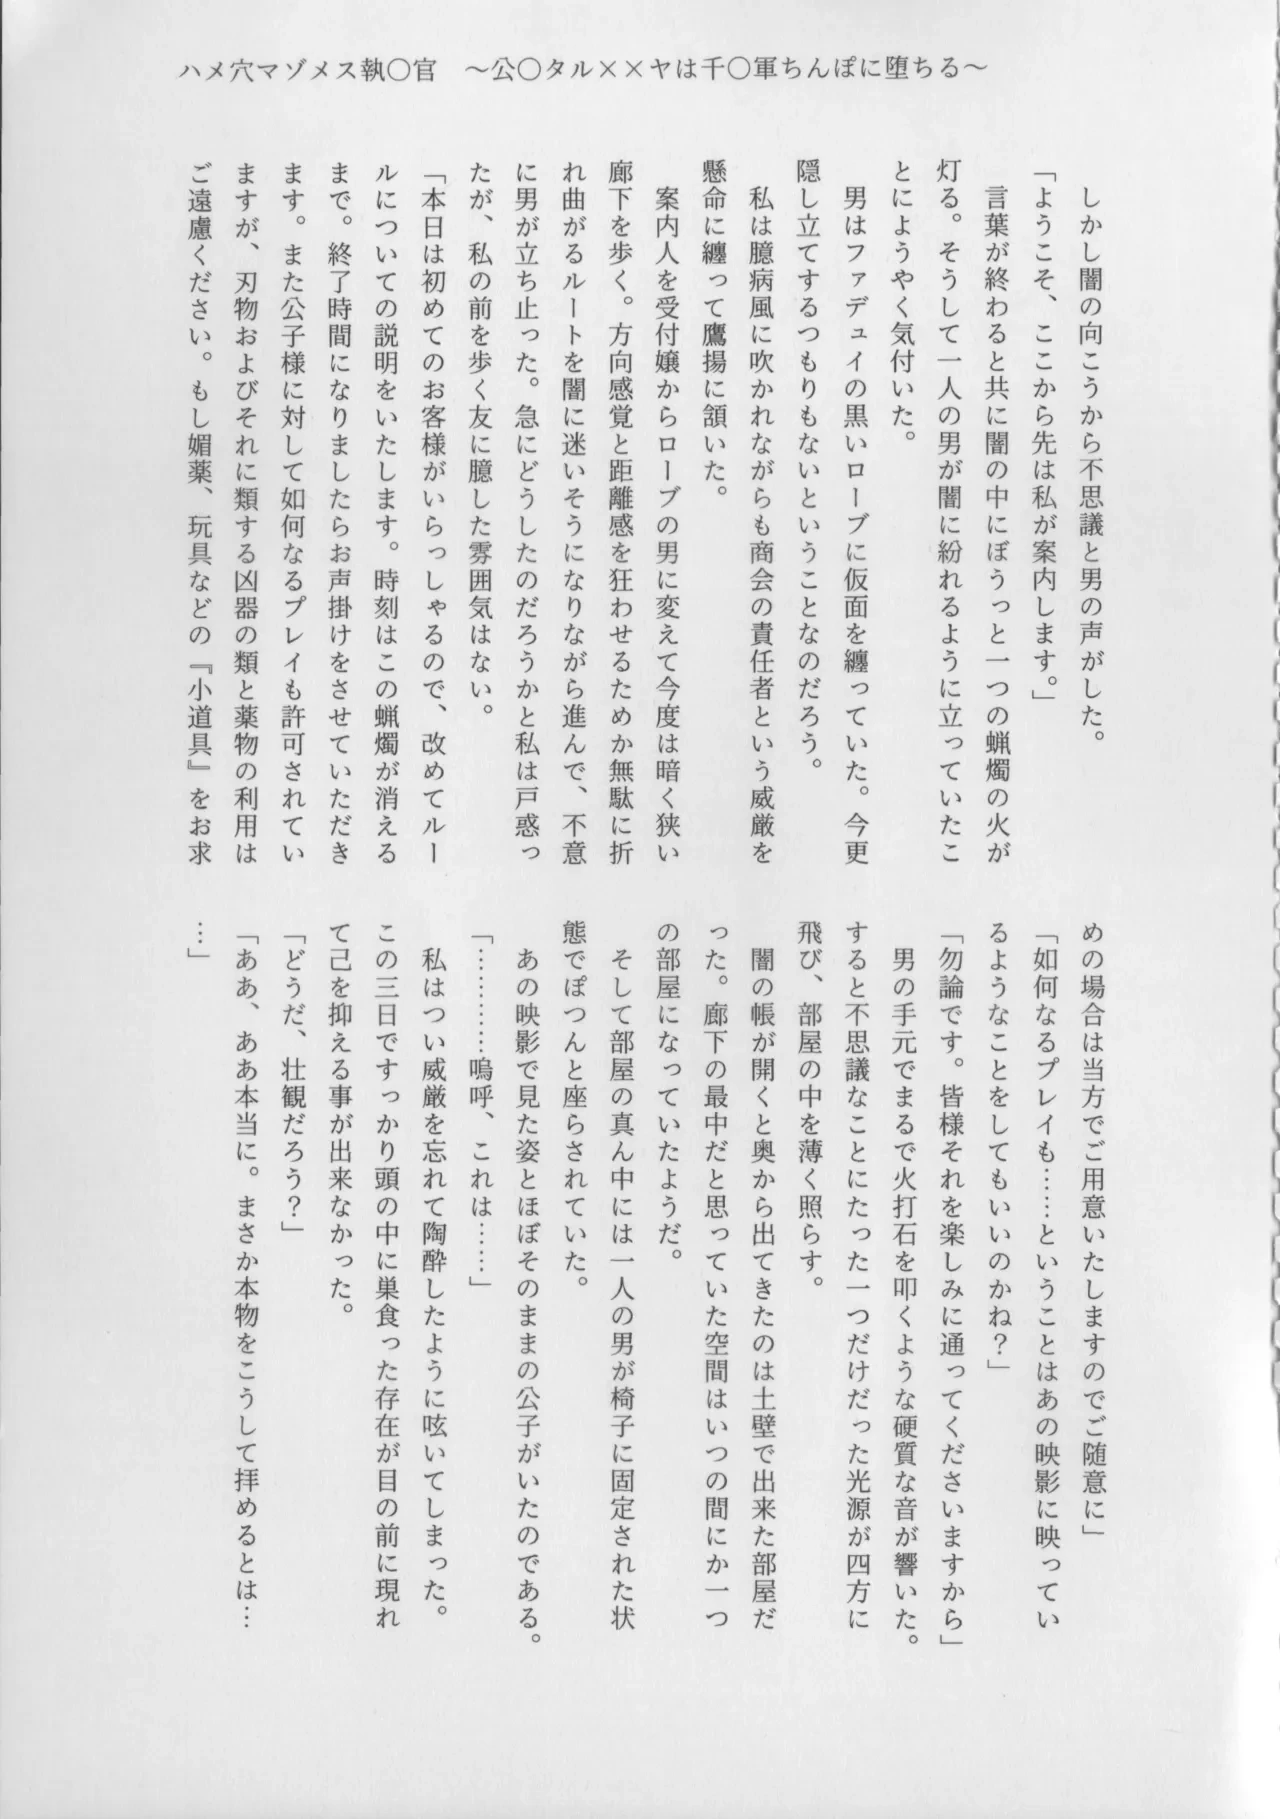 ハメ穴マゾメス執〇官　～公〇タル××ヤは千〇軍ちんぽに堕ちる～
　しかし闇の向こうから不思議と男の声がした。
「ようこそ、ここから先は私が案内します。」
　言葉が終わると共に闇の中にぼうっと一つの蝋燭の火が
灯る。そうして一人の男が闇に紛れるように立っていたこ
とにようやく気付いた。
　男はファデュイの黒いローブに仮面を纏っていた。今更
隠し立てするつもりもないということなのだろう。
　私は臆病風に吹かれながらも商会の責任者という威厳を
懸命に纏って鷹揚に頷いた。
　案内人を受付嬢からローブの男に変えて今度は暗く狭い
廊下を歩く。方向感覚と距離感を狂わせるためか無駄に折
れ曲がるルートを闇に迷いそうになりながら進んで、不意
に男が立ち止った。急にどうしたのだろうかと私は戸惑っ
たが、私の前を歩く友に臆した雰囲気はない。
「本日は初めてのお客様がいらっしゃるので、改めてルー
ルについての説明をいたします。時刻はこの蝋燭が消える
まで。終了時間になりましたらお声掛けをさせていただき
ます。また公子様に対して如何なるプレイも許可されてい
ますが、刃物およびそれに類する凶器の類と薬物の利用は
ご遠慮ください。もし媚薬、玩具などの『小道具』をお求
めの場合は当方でご用意いたしますのでご随意に」
「如何なるプレイも……ということはあの映影に映ってい
るようなことをしてもいいのかね？」
「勿論です。皆様それを楽しみに通ってくださいますから」
　男の手元でまるで火打石を叩くような硬質な音が響いた。
すると不思議なことにたった一つだけだった光源が四方に
飛び、部屋の中を薄く照らす。
　闇の帳が開くと奥から出てきたのは土壁で出来た部屋だ
った。廊下の最中だと思っていた空間はいつの間にか一つ
の部屋になっていたようだ。
　そして部屋の真ん中には一人の男が椅子に固定された状
態でぽつんと座らされていた。
　あの映影で見た姿とほぼそのままの公子がいたのである。
「…………嗚呼、これは……」
　私はつい威厳を忘れて陶酔したように呟いてしまった。
この三日ですっかり頭の中に巣食った存在が目の前に現れ
て己を抑える事が出来なかった。
「どうだ、壮観だろう？」
「ああ、ああ本当に。まさか本物をこうして拝めるとは…
…」